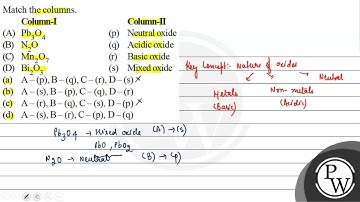 Match the columns.
Column-I Column-II
(A) Pb₃O₄ (p) Neutral oxide
(B) N₂O (q) Acidic oxide
(C) Mn₂O₇ (r) Basic oxide
(D) Bi₂O₃ (s) Mixed oxide
(a) A – (p), B – (q), C – (r), D – (s) ×
(b) A – (s), B – (p), C – (q), D – (r)
(c) A – (r), B – (q), C – (s), D – (p) ×
(d) A – (s), B – (r), C – (p), D – (q)
Key Concept:- Nature of oxides
Metals (Basic) Non-metals (Acidic) Neutral
Pb₃O₄ → Mixed oxide (A) → (s)
PbO, PbO₂
N₂O → Neutral (B) → (p)
P
W